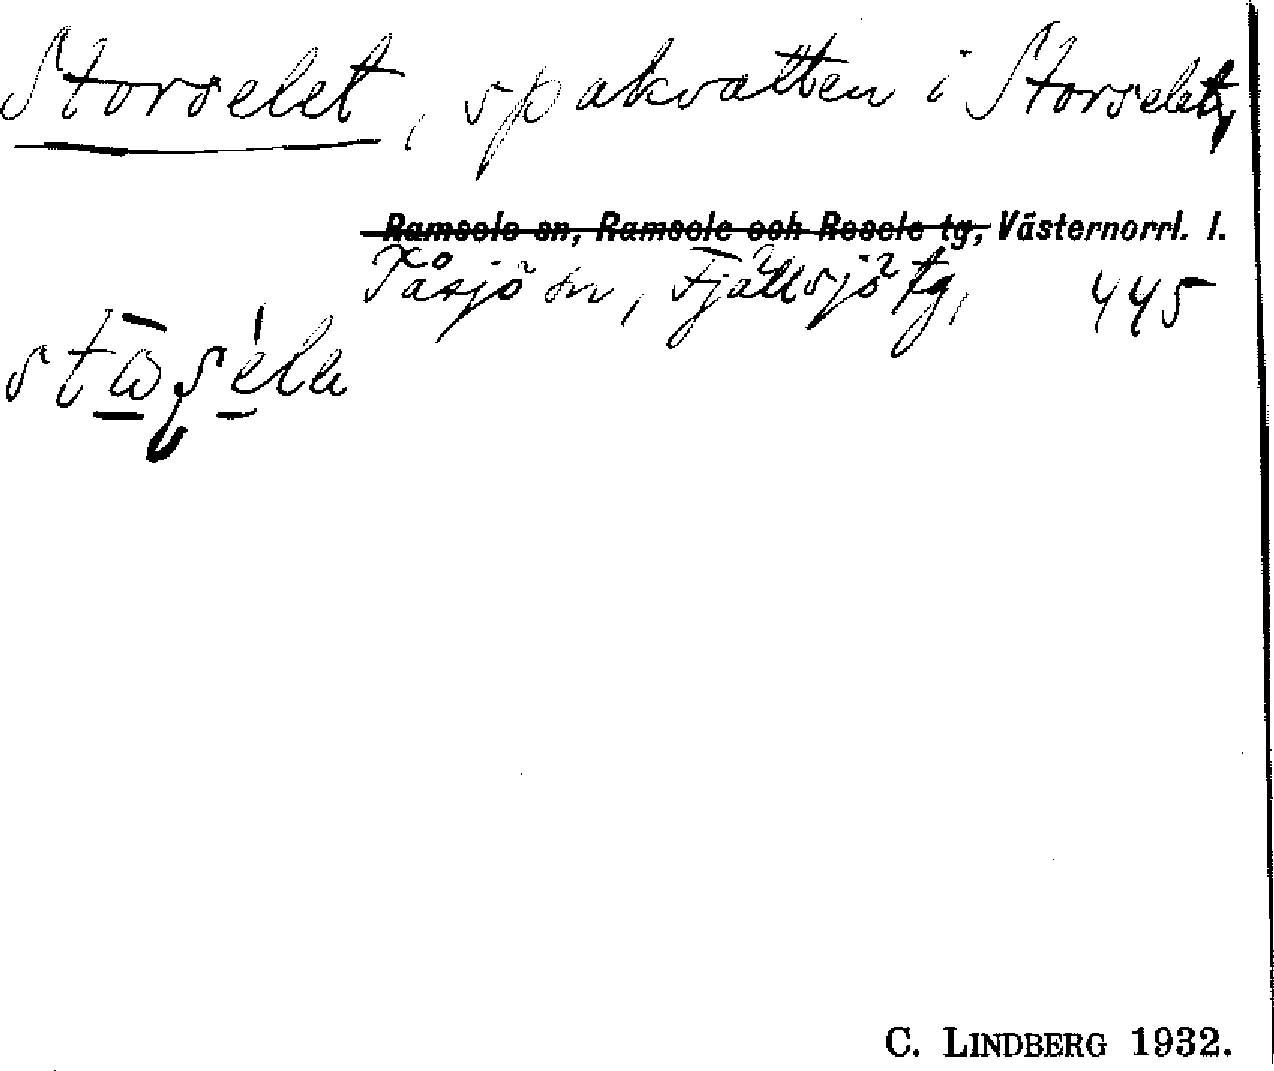 Storselet, spakvatten i Storselet,
Ramsele sn, Ramsele och Resele tg, Västernorrl. l.
Tåsjö sn, Fjällsjö tg, 445
C. LINDBERG 1932.